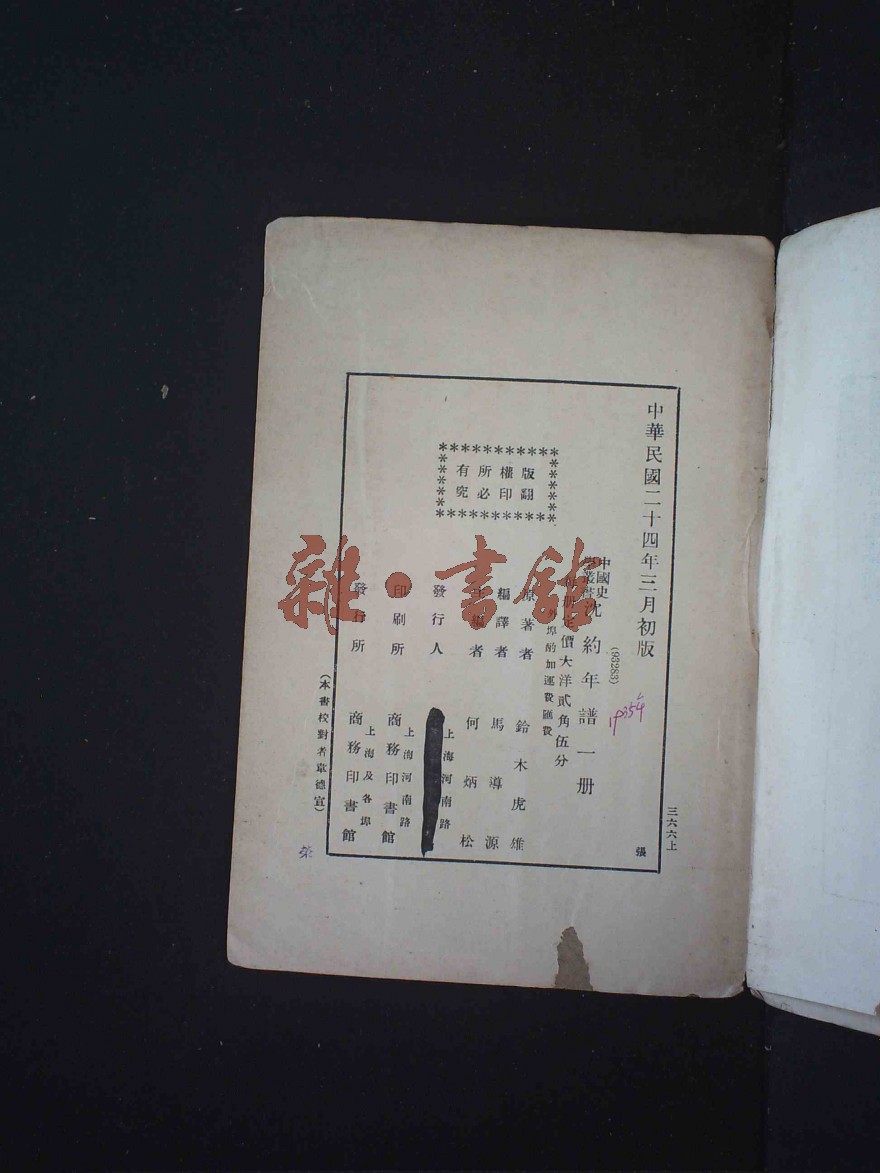 中華民國二十四年三月初版
三六六上
張
(93283)
中國史
學叢書
沈約年譜一册
每册定價大洋貳角伍分
外埠酌加運費匯費
版權所有
翻印必究
原著者 鈴木虎雄
編譯者 馬導源
主編者 何炳松
發行人
上海河南路
印刷所 商務印書館
上海河南路
發行所 商務印書館
上海及各埠
(本書校對者韋德宣)
雜·書館